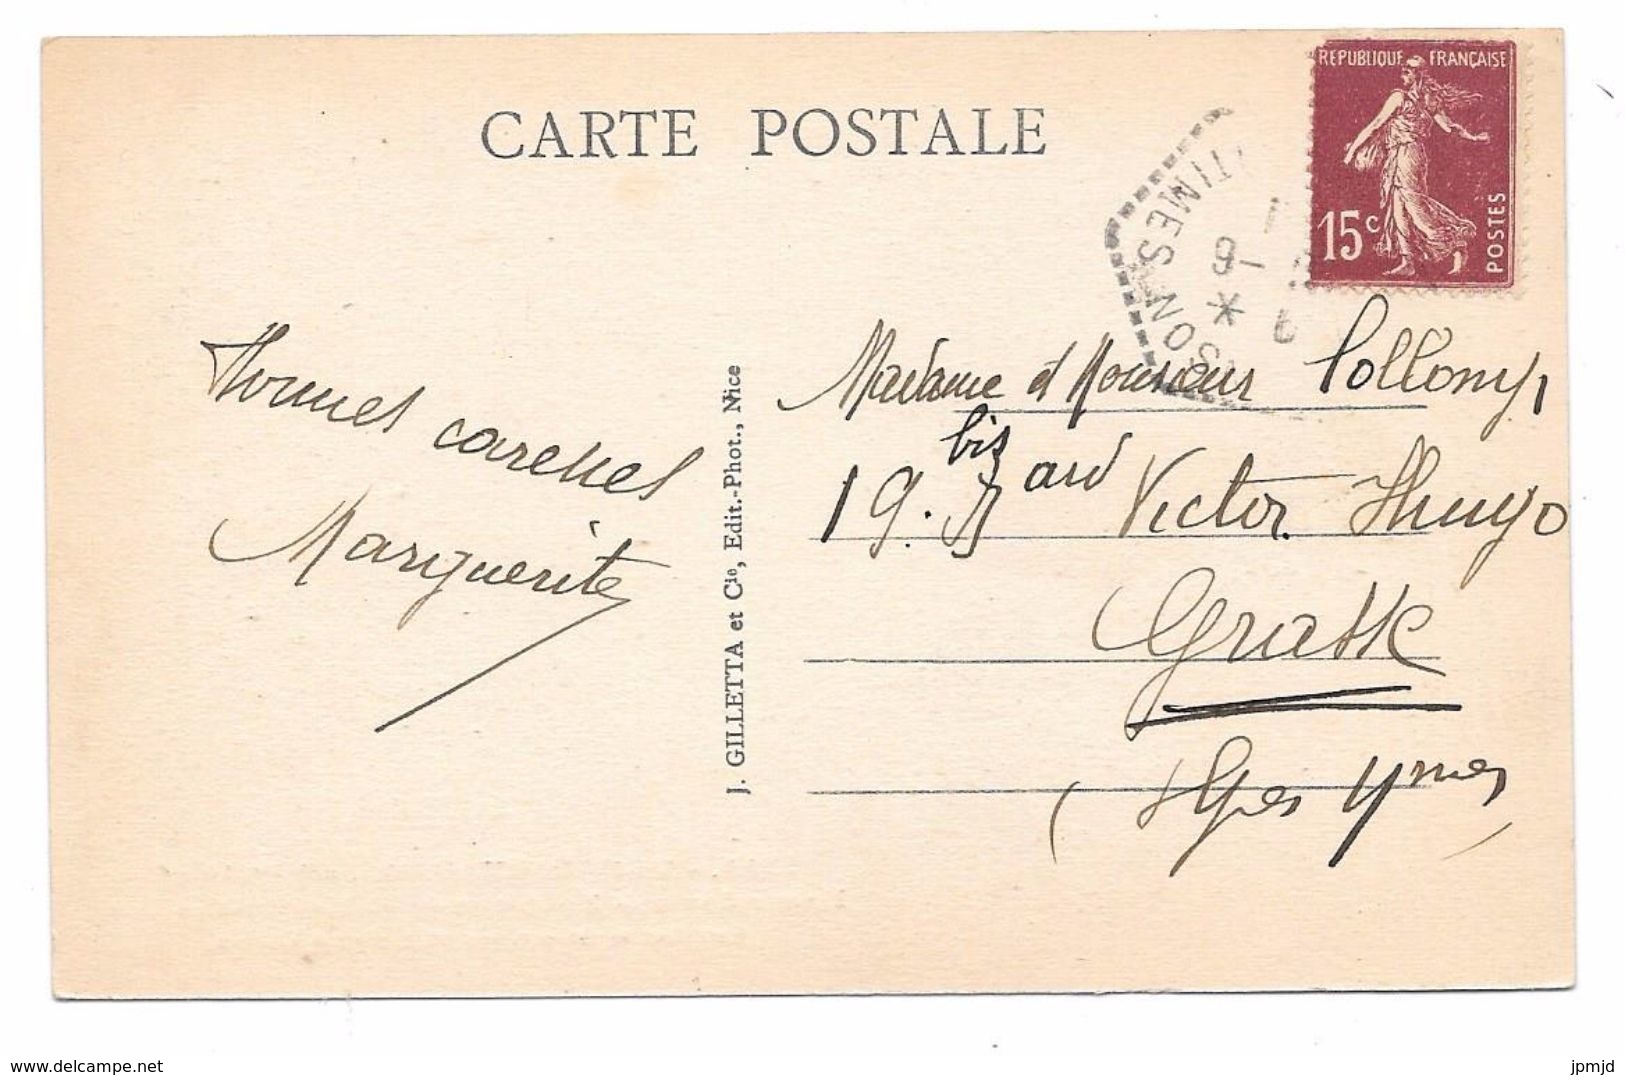 CARTE POSTALE
REPUBLIQUE FRANÇAISE
15c
POSTES
TIMES SON
Bonnes caresses
Marguerite
J. GILLETTA et Cie, Edit.-Phot., Nice
Madame et Monsieur
19 bis Bard Victor Hugo
Grasse
(Alpes Mmes)
www.delcampe.net
jpmjd